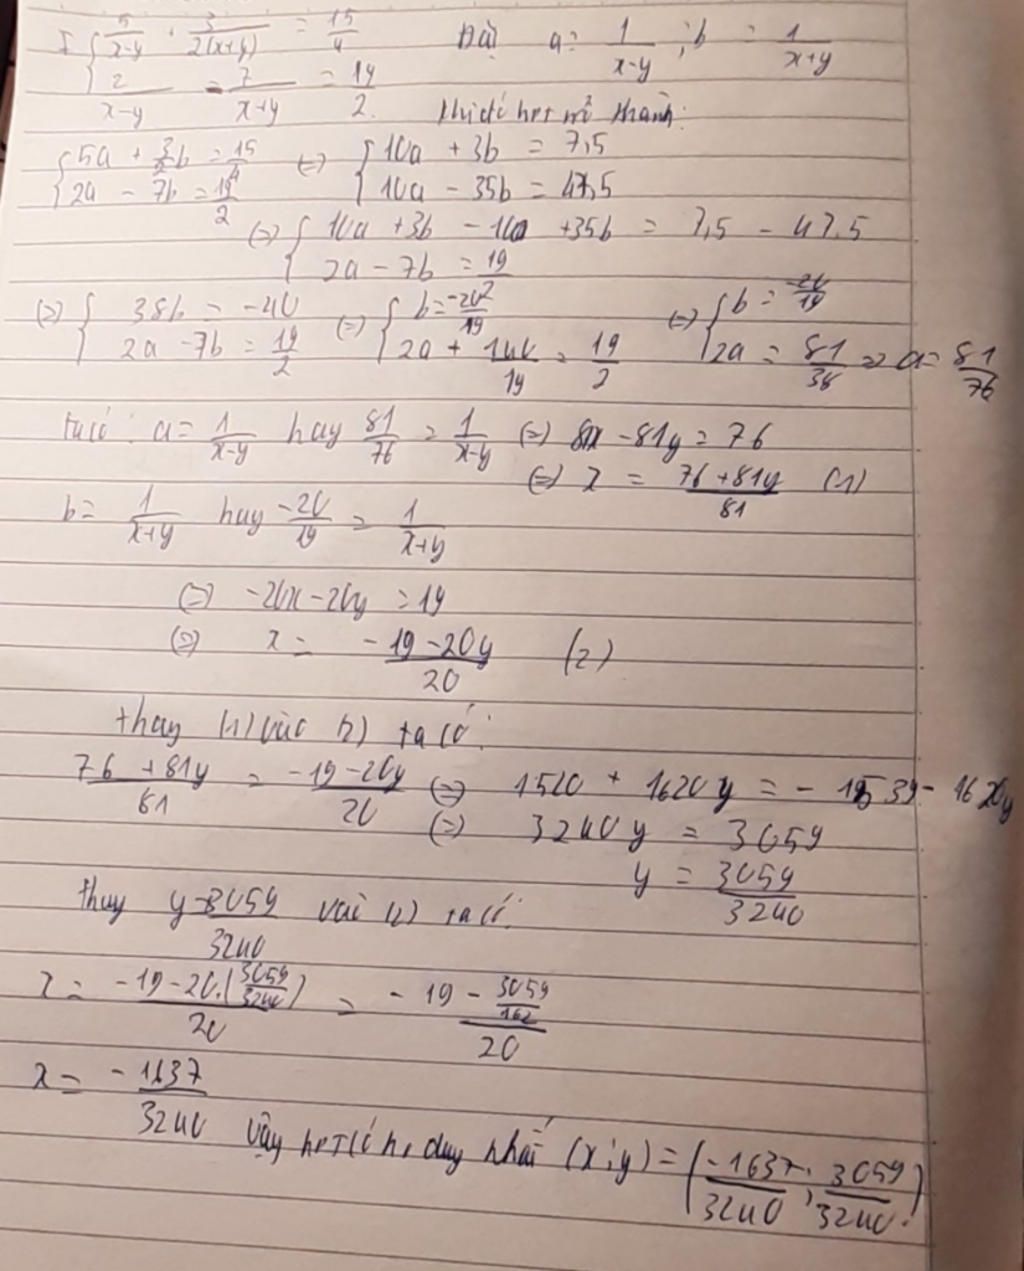 I { 5/(x-y) + 3/(2(x+y)) = 15/4 Đặt a = 1/(x-y) ; b = 1/(x+y)
{ 2/(x-y) - 7/(x+y) = 19/2 khi đó hpt trở thành:
{ 5a + 3/2 b = 15/4 (=) { 10a + 3b = 7,5
{ 2a - 7b = 19/2 { 10a - 35b = 47,5
(=) { 10a + 3b - 10a + 35b = 7,5 - 47,5
{ 2a - 7b = 19/2
(=) { 38b = -40 (=) { b = -20/19 (=) { b = -20/19
{ 2a - 7b = 19/2 { 2a + 140/19 = 19/2 { 2a = 81/38 => a = 81/76
ta có : a = 1/(x-y) hay 81/76 = 1/(x-y) (=) 81x - 81y = 76
(=) x = (76 + 81y)/81 (1)
b = 1/(x+y) hay -20/19 = 1/(x+y)
(=) -20x - 20y = 19
(=) x = (-19 - 20y)/20 (2)
thay (1) vào (2) ta có:
(76 + 81y)/81 = (-19 - 20y)/20 (=) 1520 + 1620y = - 1539 - 1620y
(=) 3240y = 3059
y = 3059/3240
thay y = 3059/3240 vào (2) ta có:
x = (-19 - 20.(3059/3240))/20 = (-19 - 3059/162)/20
x = -1637/3240
Vậy hpt có no duy nhất (x;y) = (-1637/3240 ; 3059/3240)